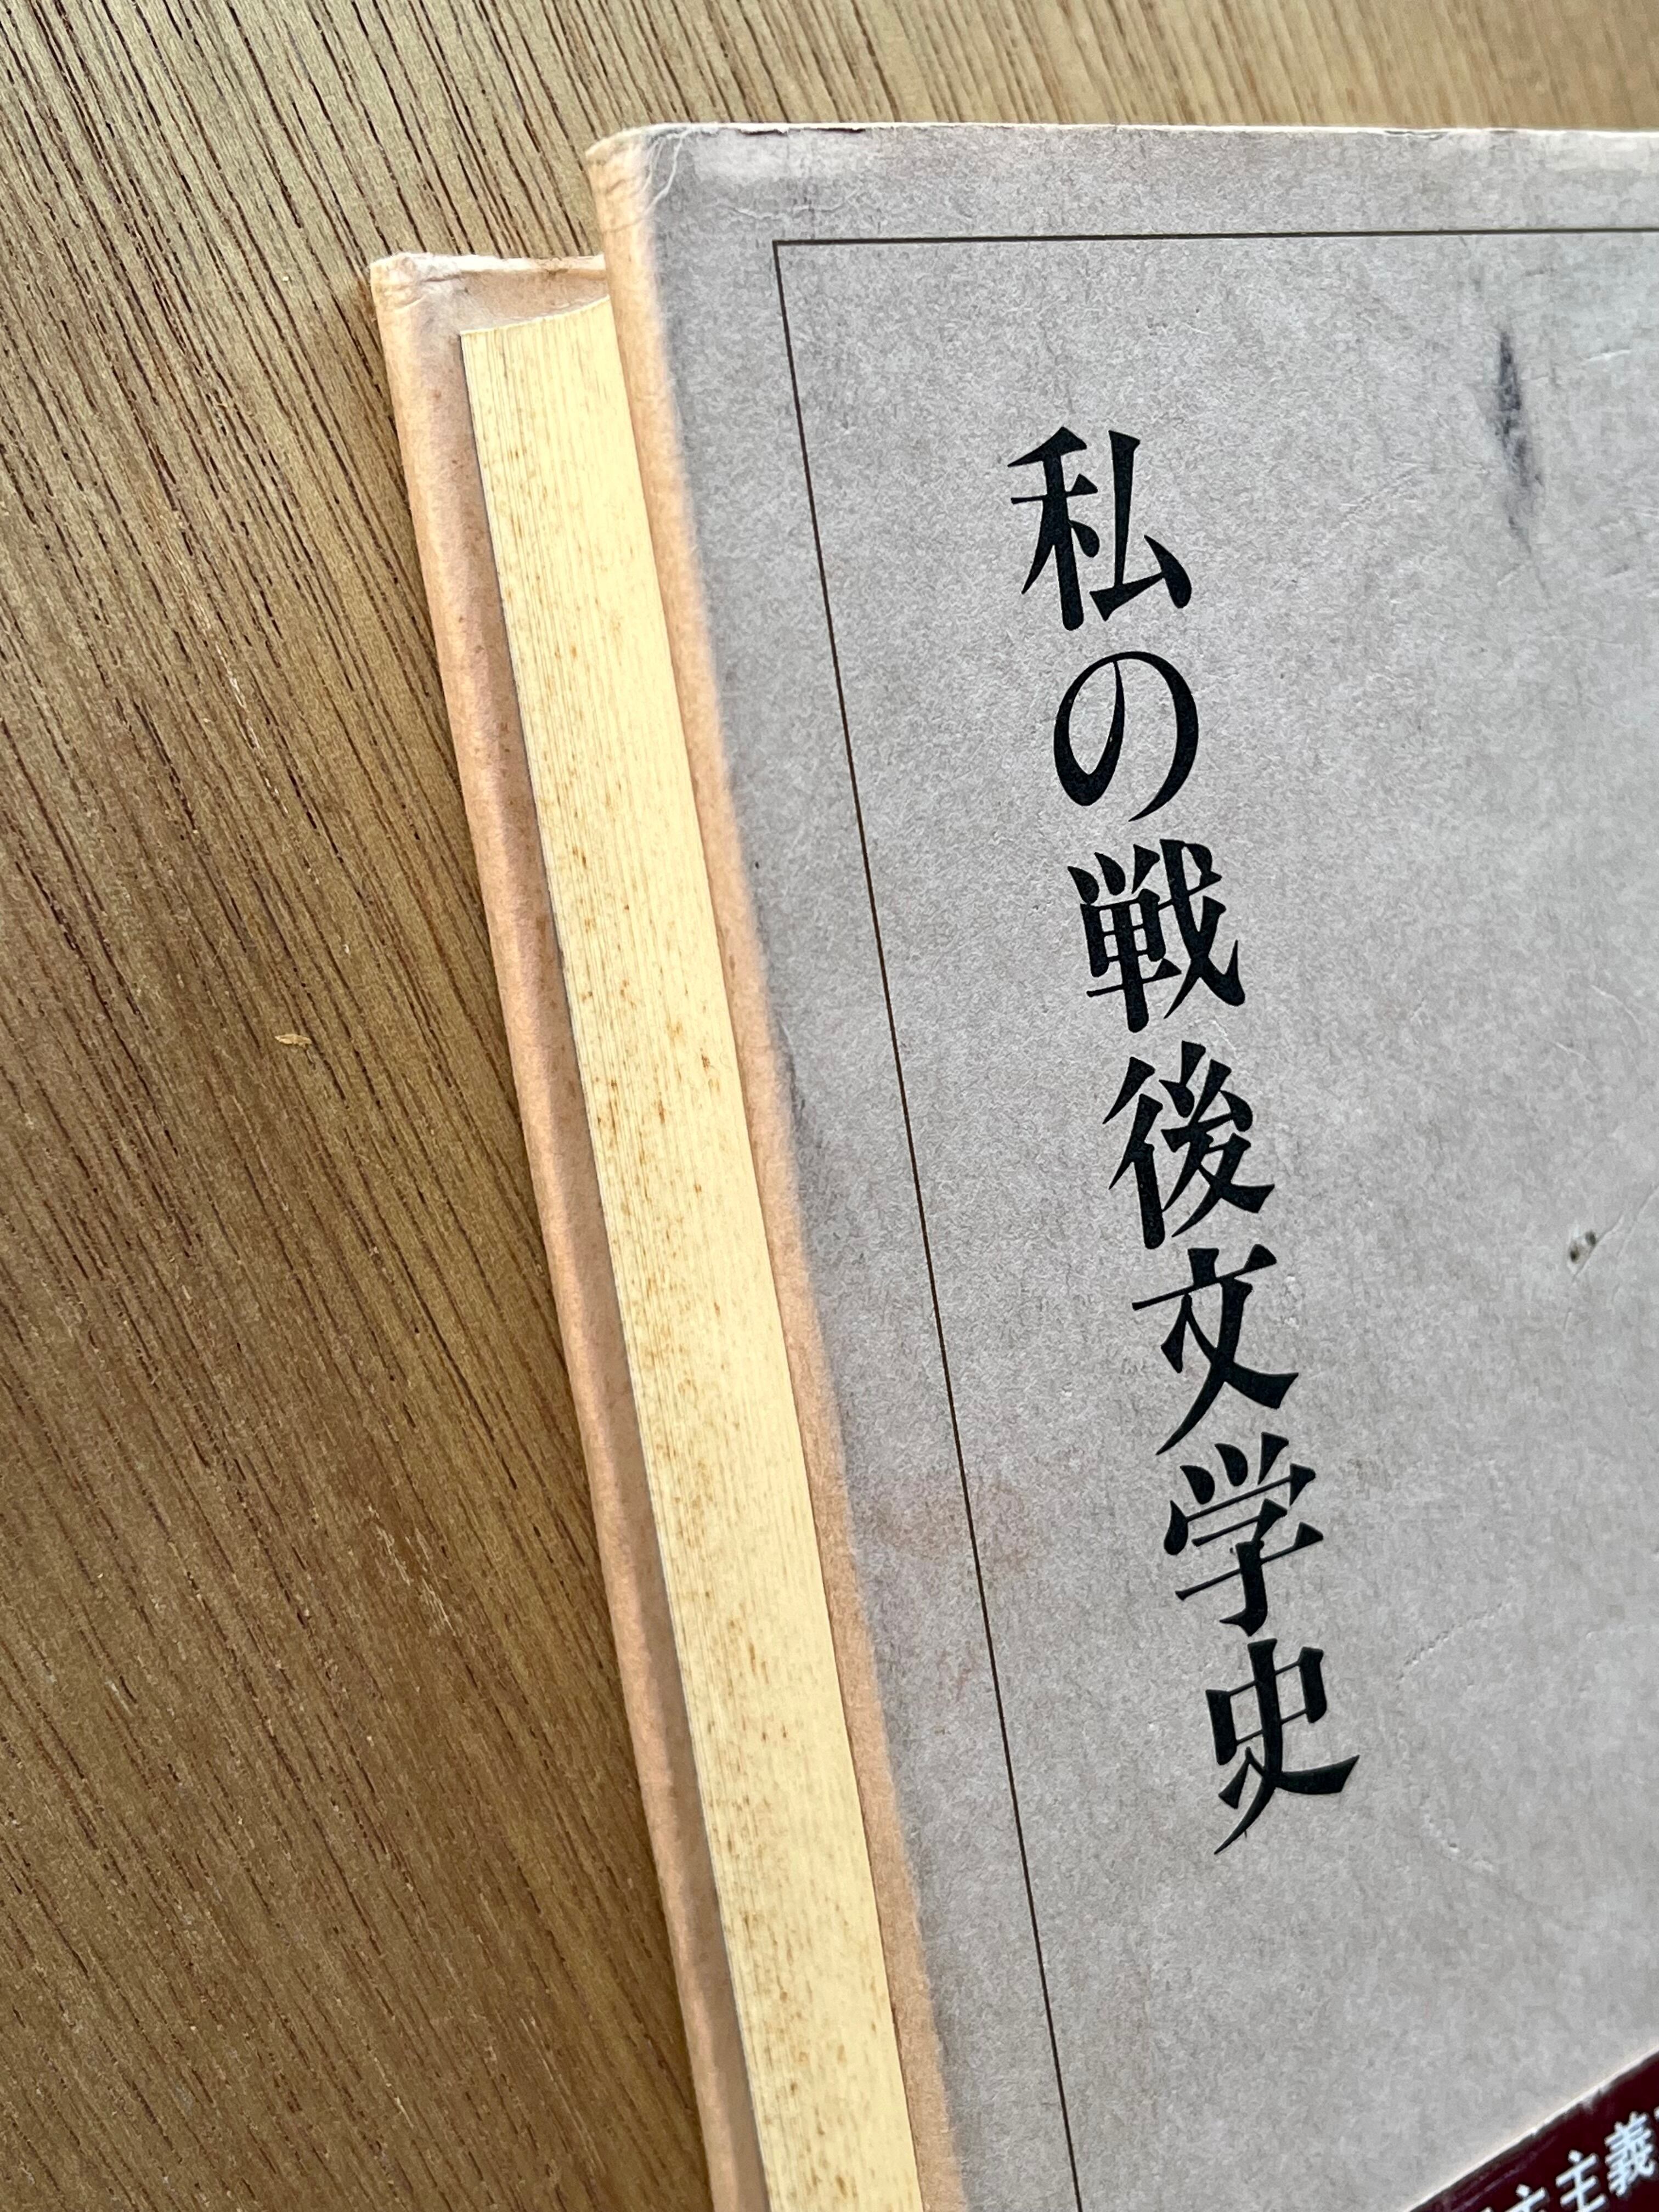 私の戦後文学史
主義